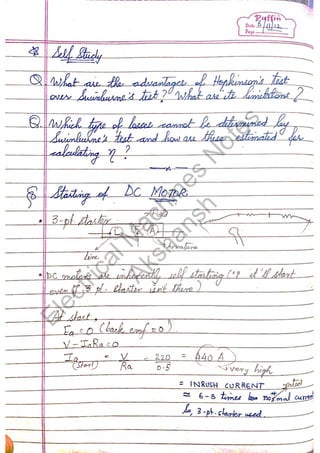 Puffin
Date 5/11/12
Page
Self Study
Q. What are the advantages of Hopkinson's test
over Swinburne's test? What are its limitations?
Q. Which type of losses cannot be determined by
Swinburne's test and how are these estimated for
calculating η ?
Starting of DC MOTOR
• 3-pt. starter
L F A
line
armature
• DC motors are inherently self starting (∵ it'll start
even if 3 pt. starter isn't there)
At start,
Ea = 0 (back emf = 0)
V - IaRa = 0
Ia (start) = V/Ra = 220/0.5 = 440 A
very high
= INRUSH CURRENT
≃ 6-8 times normal current
So, 3-pt. starter used.
Electrical Machines Notes
Aakaansh